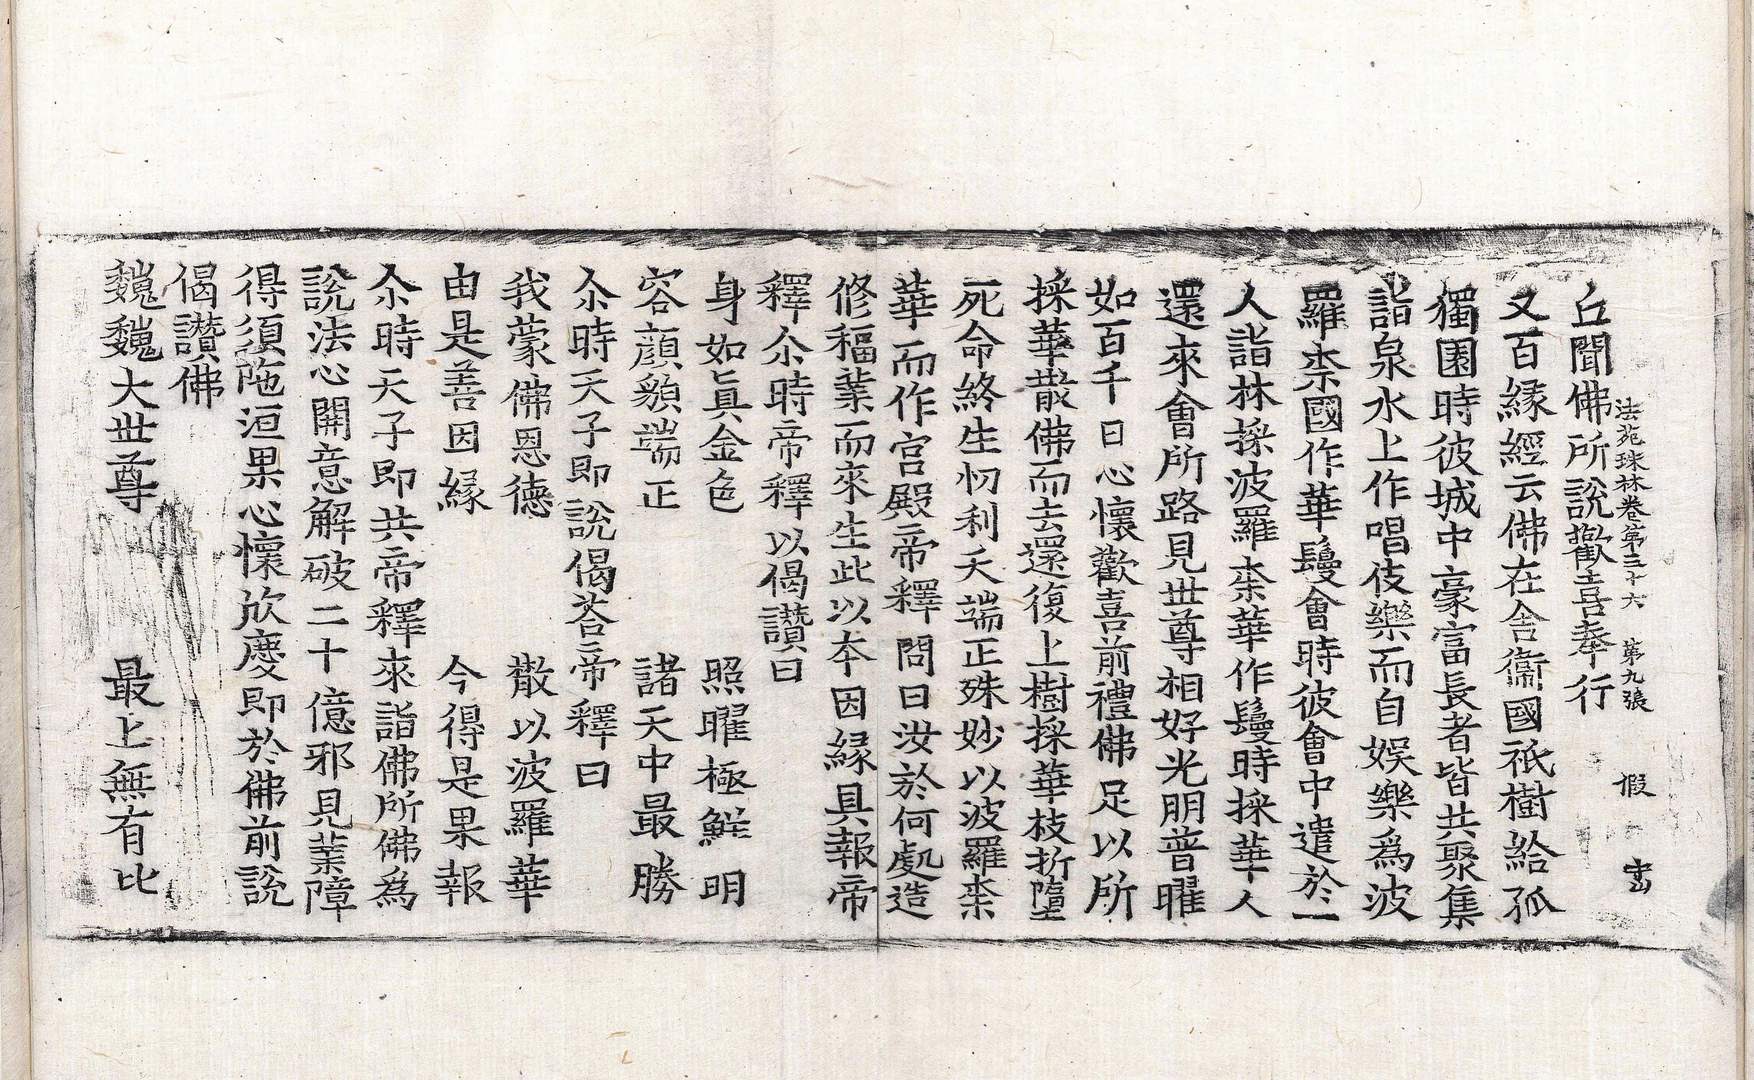 丘聞佛所說歡喜奉行
法苑珠林卷第三十六　第九張　假
又百緣經云佛在舍衞國祇樹給孤
獨園時彼城中豪富長者皆共聚集
詣泉水上作唱伎樂而自娛樂爲波
羅柰國作華鬘會時彼會中遣於一
人詣林採波羅柰華作鬘時採華人
還來會所路見世尊相好光明普曜
如百千日心懷歡喜前禮佛足以所
採華散佛而去還復上樹採華枝折墮
死命終生忉利天端正殊妙以波羅柰
華而作宮殿帝釋問曰汝於何處造
修福業而來生此以本因緣具報帝
釋尒時帝釋以偈讚曰
身如眞金色　照曜極鮮明
容顏貌端正　諸天中最勝
尒時天子即說偈荅帝釋曰
我蒙佛恩德　散以波羅華
由是善因緣　今得是果報
尒時天子即共帝釋來詣佛所佛爲
說法心開意解破二十億邪見業障
得須陁洹果心懷欣慶即於佛前說
偈讚佛
巍巍大世尊　最上無有比